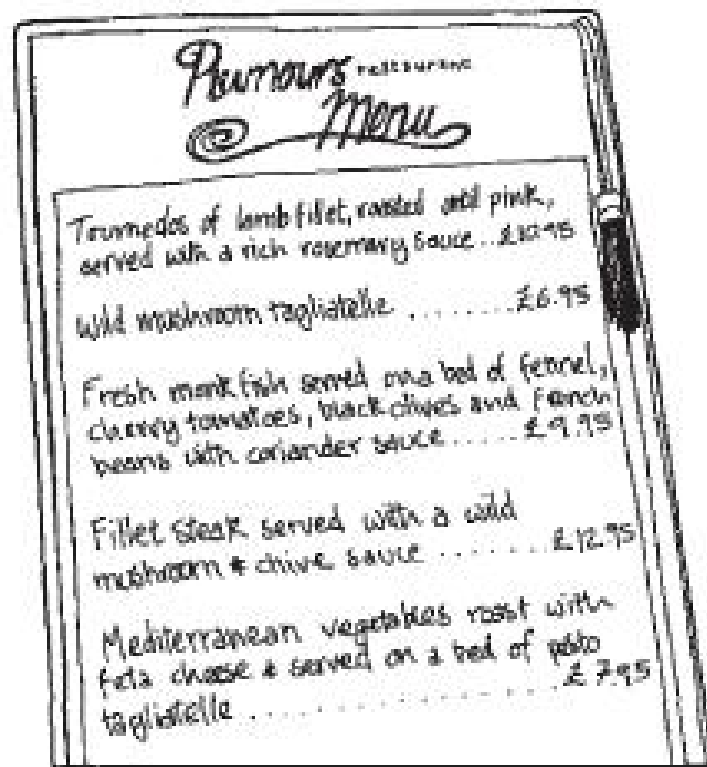 Rumours restaurant
Menu
Tournedos of lamb fillet, roasted until pink,
served with a rich rosemary sauce .. £10.95
Wild mushroom tagliatelle ........ £6.95
Fresh monkfish served on a bed of fennel,
cherry tomatoes, black olives and French
beans with coriander sauce ..... £9.95
Fillet steak served with a wild
mushroom & chive sauce ....... £12.95
Mediterranean vegetables roast with
feta cheese & served on a bed of pesto
tagliatelle ................ £7.95